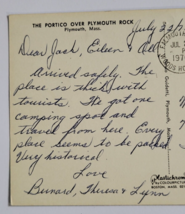 THE PORTICO OVER PLYMOUTH ROCK
Plymouth, Mass.
July 22/7
Dear Jack, Eileen & All
Arrived safely. The
place is thick with
tourists. We got one
camping spot and
travel from here. Every
place seems to be packed.
Very historical.
Love
Bernard, Theresa & Lynn
Plastichrome
BOSTON, MASS.